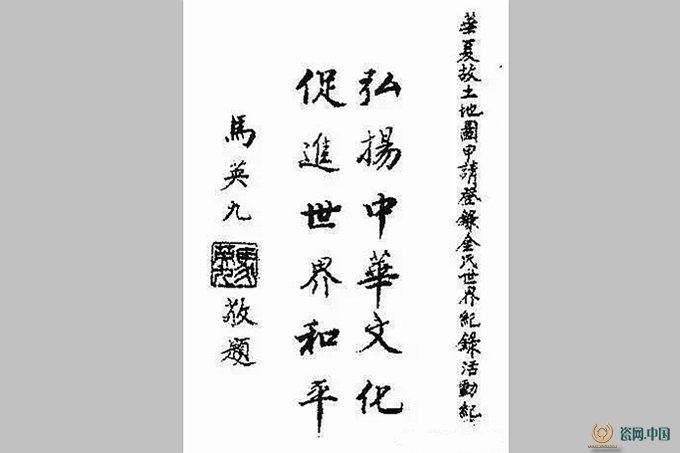 華夏故土地圖申請登錄金氏世界紀錄活動紀
弘揚中華文化
促進世界和平
馬英九
敬題
瓷网.中国